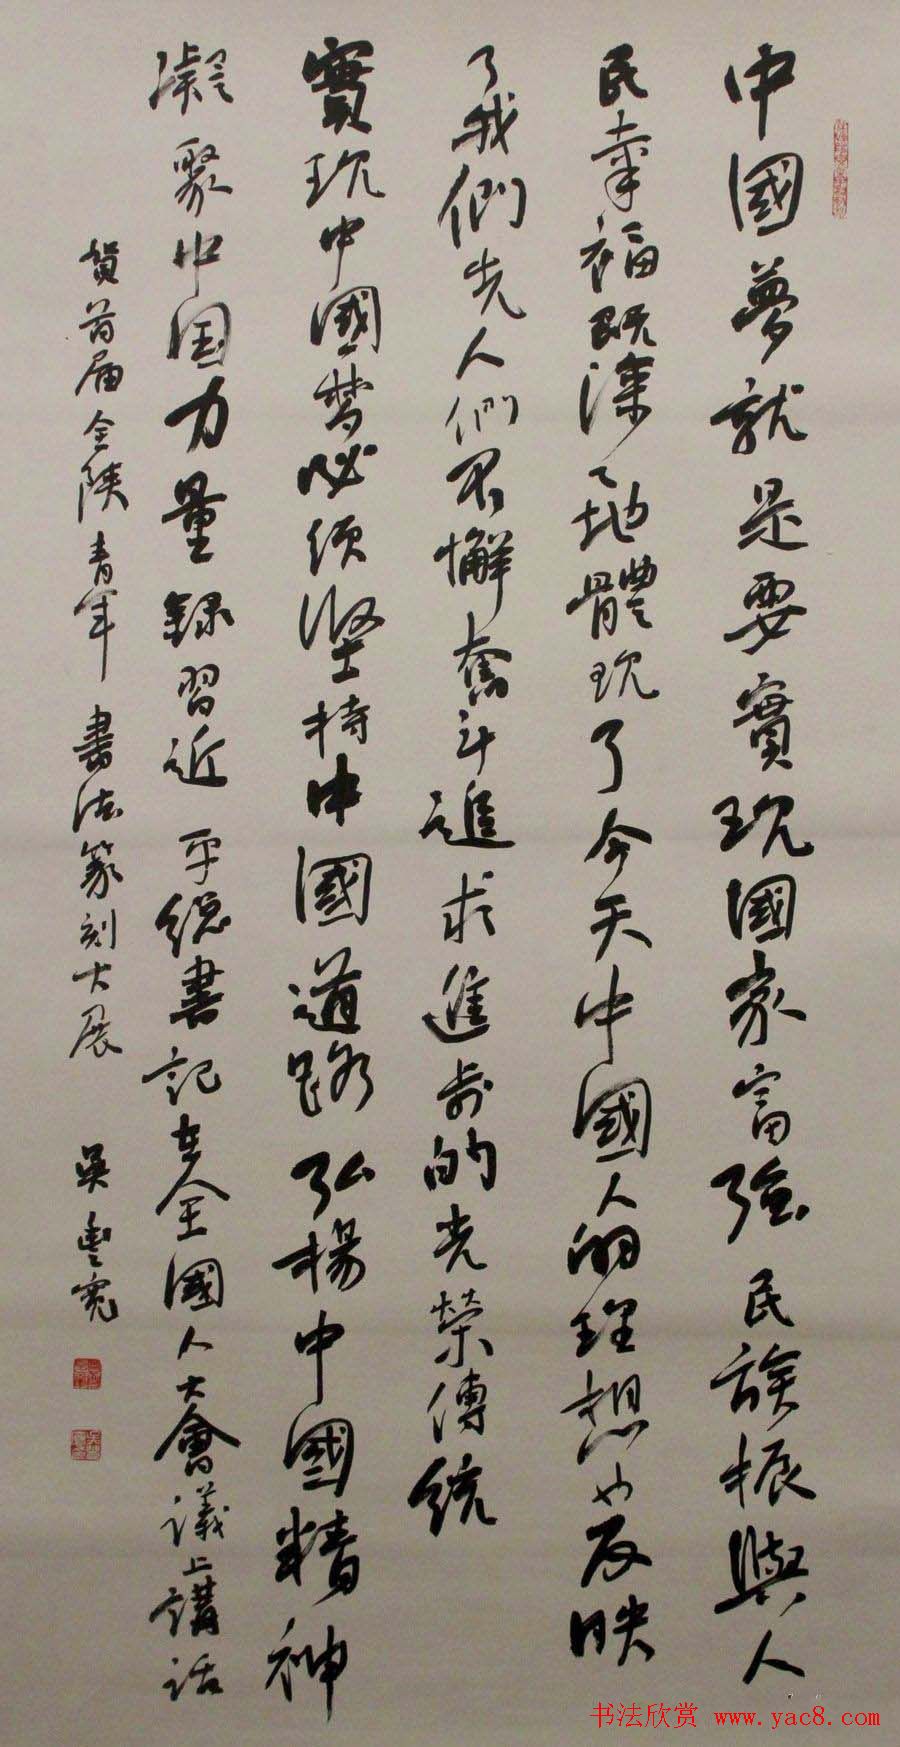 中國夢就是要實現國家富強民族振興人
民幸福既深々地體現了今天中國人的理想也反映
了我們先人們不懈奮斗追求進步的光榮傳統
實現中國梦必须堅持中國道路弘楊中國精神
凝聚中国力量録習近平總書記在全國人大會議上講話
賀首届全陕青年書法篆刻大展 吴豊寬
书法欣赏 www.yac8.com